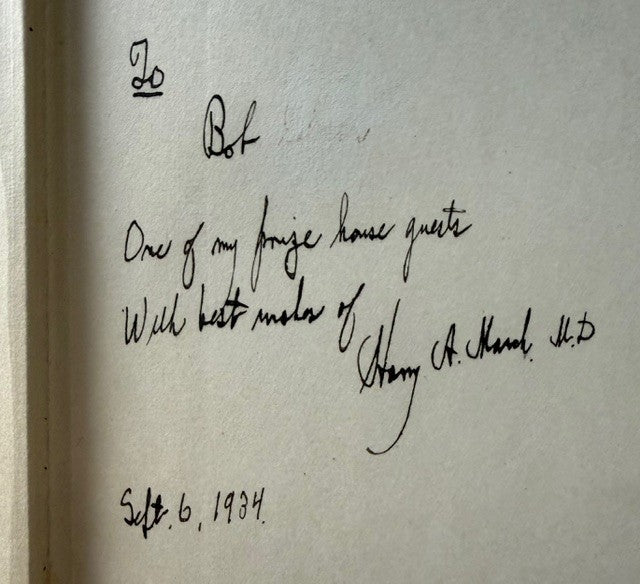 To
Bob
One of my prize house guests
With best wishes of
Harry A. March. M.D
Sept. 6, 1934.